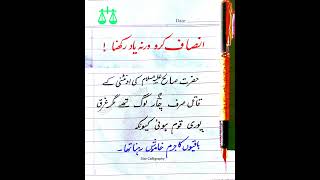 Date
انصاف کرو ورنہ یاد رکھنا !
حضرت صالح علیہ السلام کی اونٹنی کے
قاتل صرف چار لوگ تھے مگر غرق
پوری قوم ہوئی کیونکہ
باقیوں کا جرم خاموش رہنا تھا۔
Calligraphy